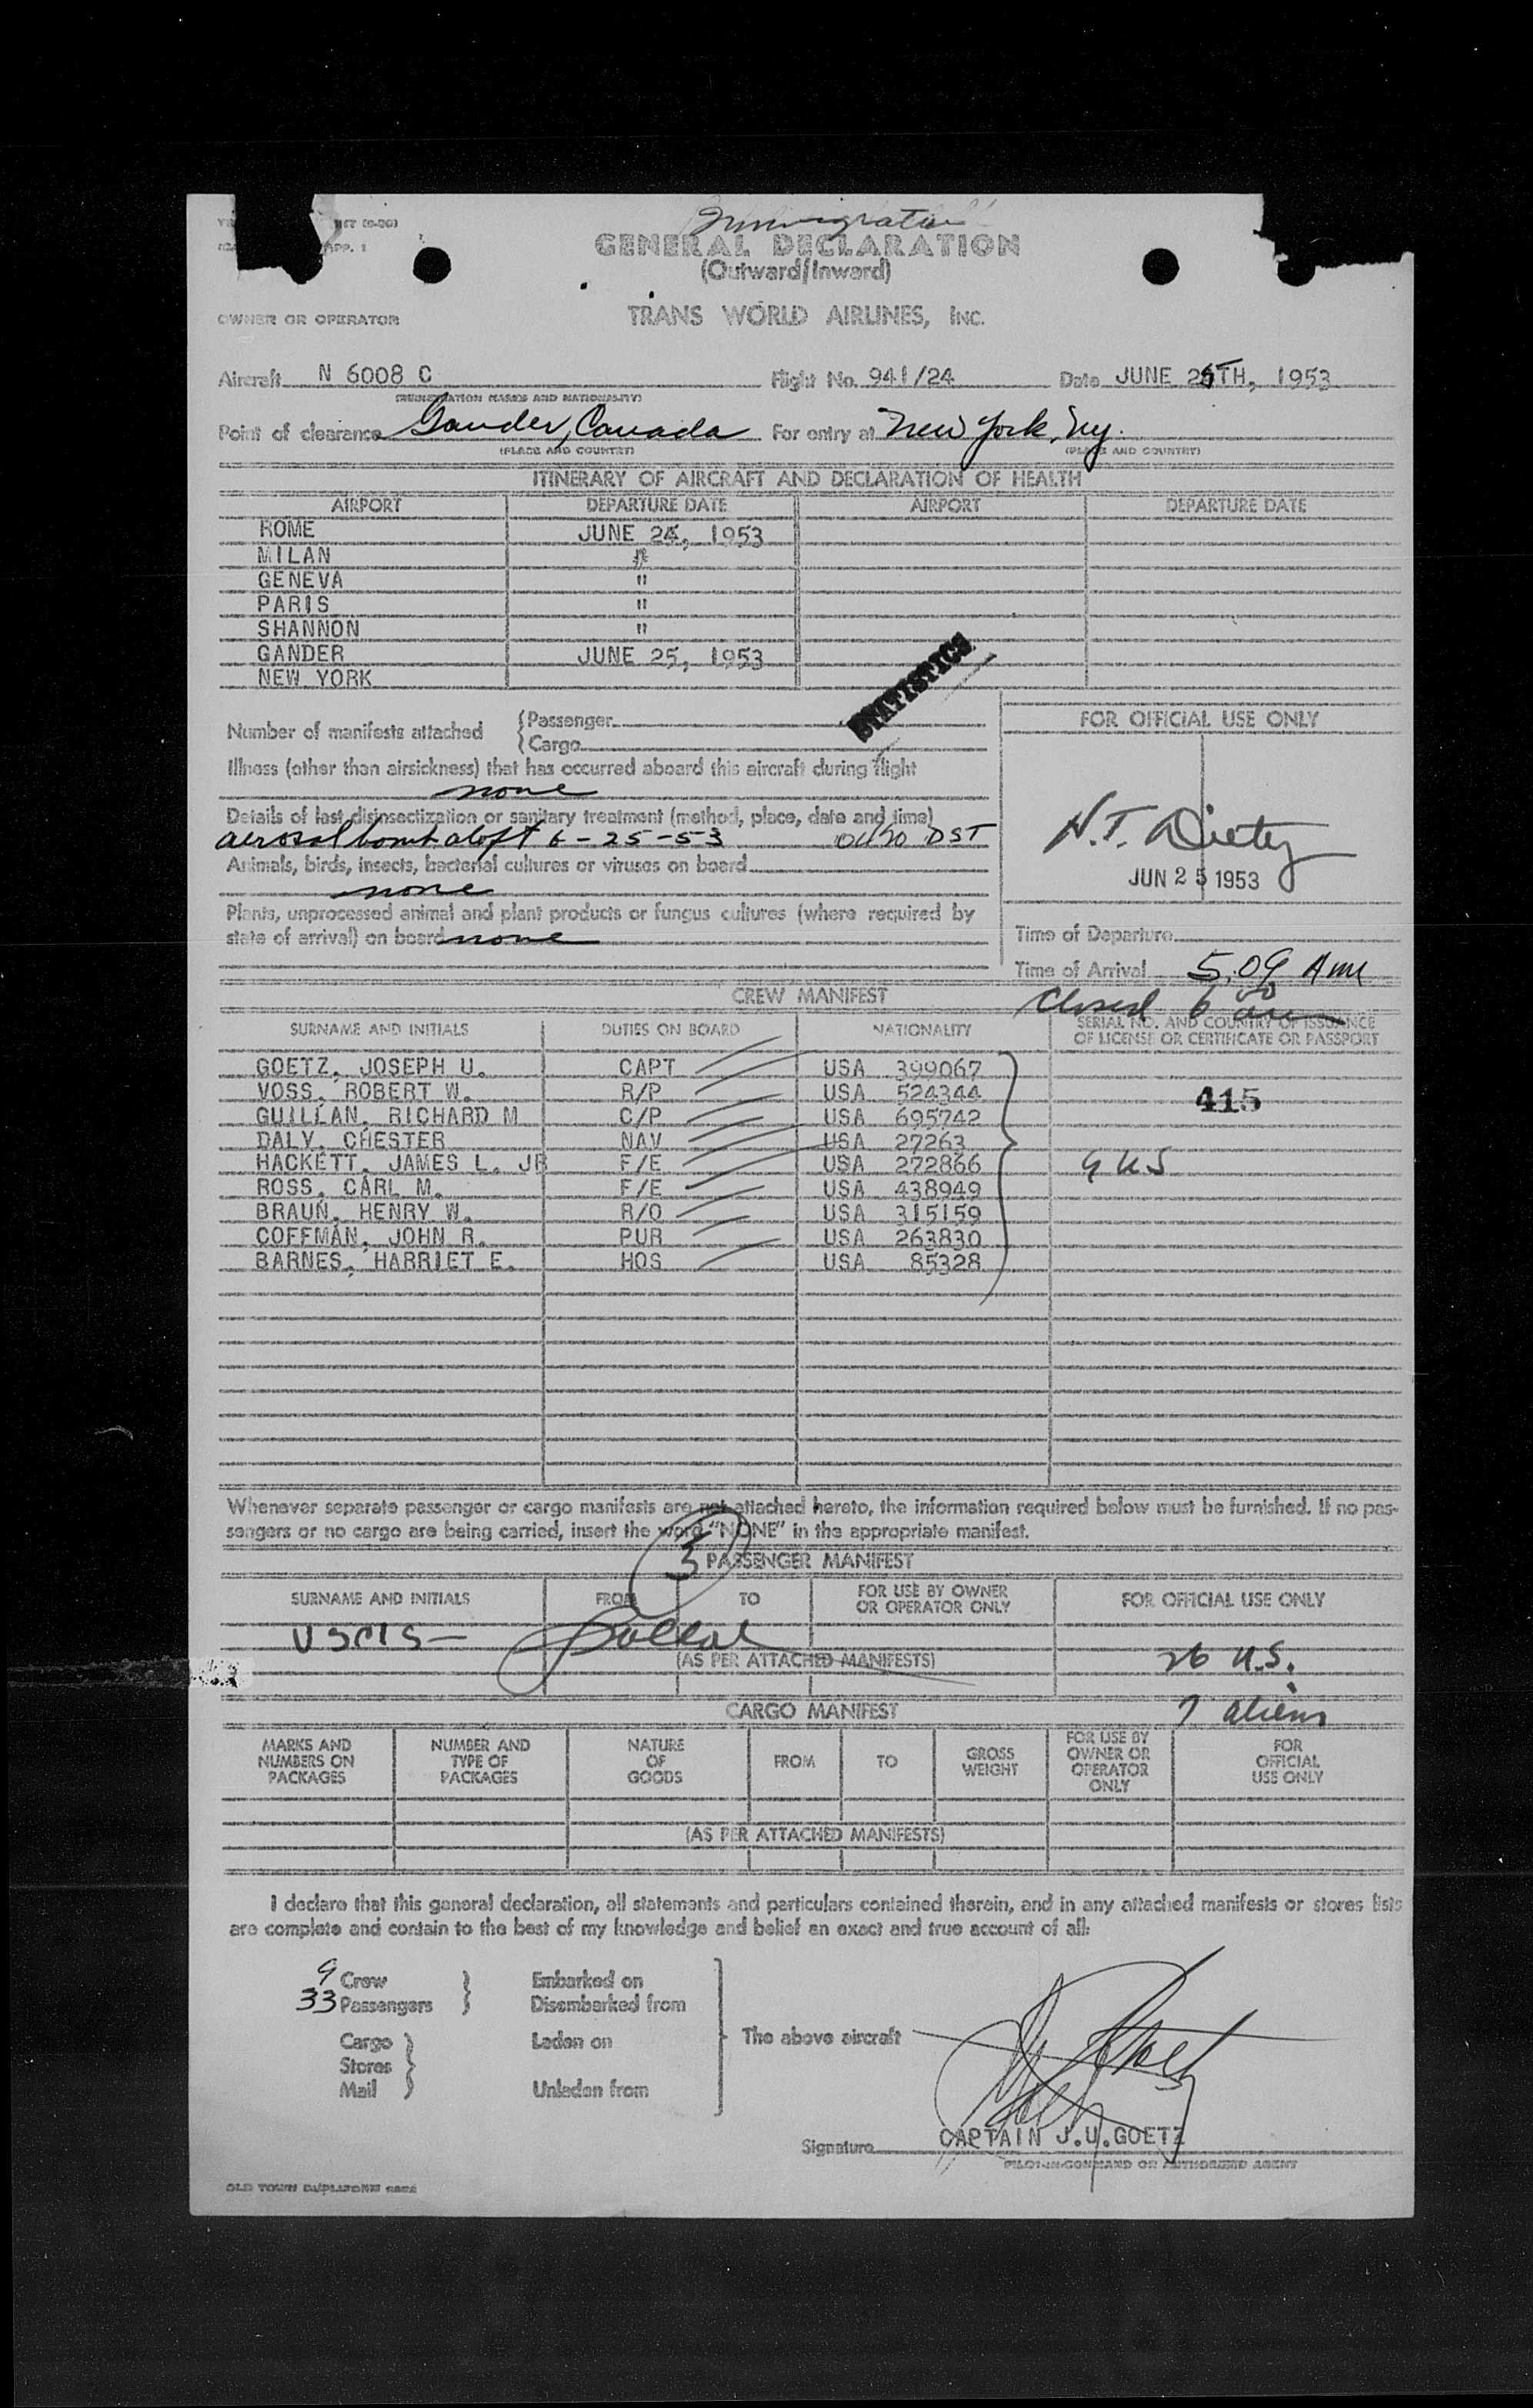 Immigration
GENERAL DECLARATION
(Outward/Inward)
TRANS WORLD AIRLINES, INC.
OWNER OR OPERATOR
Aircraft N 6008 C Flight No. 941/24 Date JUNE 25TH, 1953
(REGISTRATION MARKS AND NATIONALITY)
Point of clearance Gander, Canada For entry at New York, Ny.
(PLACE AND COUNTRY) (PLACE AND COUNTRY)
ITINERARY OF AIRCRAFT AND DECLARATION OF HEALTH
AIRPORT DEPARTURE DATE AIRPORT DEPARTURE DATE
ROME JUNE 24, 1953
MILAN "
GENEVA "
PARIS "
SHANNON "
GANDER JUNE 25, 1953
NEW YORK
STATISTICS
Number of manifests attached { Passenger
{ Cargo
FOR OFFICIAL USE ONLY
Illness (other than airsickness) that has occurred aboard this aircraft during flight
none
Details of last disinsectization or sanitary treatment (method, place, date and time)
aerosol bomb aloft 6-25-53 0420 DST
Animals, birds, insects, bacterial cultures or viruses on board
none
Plants, unprocessed animal and plant products or fungus cultures (where required by
state of arrival) on board none
N.T. Dietz
JUN 25 1953
Time of Departure
Time of Arrival 5.09 AM
Closed 6 00 am
CREW MANIFEST
SURNAME AND INITIALS DUTIES ON BOARD NATIONALITY SERIAL NO. AND COUNTRY OF ISSUANCE
OF LICENSE OR CERTIFICATE OR PASSPORT
GOETZ, JOSEPH U. CAPT USA 399067
VOSS, ROBERT W. R/P USA 524344
415
GUILLAN, RICHARD M C/P USA 695742
DALY, CHESTER NAV USA 27263
HACKETT, JAMES L. JR F/E USA 272866
9 US
ROSS, CARL M. F/E USA 438949
BRAUN, HENRY W. R/O USA 315159
COFFMAN, JOHN R. PUR USA 263830
BARNES, HARRIET E. HOS USA 85328
Whenever separate passenger or cargo manifests are not attached hereto, the information required below must be furnished. If no pas-
sengers or no cargo are being carried, insert the word "NONE" in the appropriate manifest.
3
PASSENGER MANIFEST
SURNAME AND INITIALS FROM TO FOR USE BY OWNER
OR OPERATOR ONLY FOR OFFICIAL USE ONLY
(AS PER ATTACHED MANIFESTS) 26 U.S.
7 aliens
CARGO MANIFEST
MARKS AND
NUMBERS ON
PACKAGES NUMBER AND
TYPE OF
PACKAGES NATURE
OF
GOODS FROM TO GROSS
WEIGHT FOR USE BY
OWNER OR
OPERATOR
ONLY FOR
OFFICIAL
USE ONLY
(AS PER ATTACHED MANIFESTS)
I declare that this general declaration, all statements and particulars contained therein, and in any attached manifests or stores lists
are complete and contain to the best of my knowledge and belief an exact and true account of all:
9 Crew } Embarked on
33 Passengers } Disembarked from
Cargo } Laden on The above aircraft
Stores
Mail } Unladen from
Signature CAPTAIN J.U.GOETZ
PILOT-IN-COMMAND OR AUTHORIZED AGENT